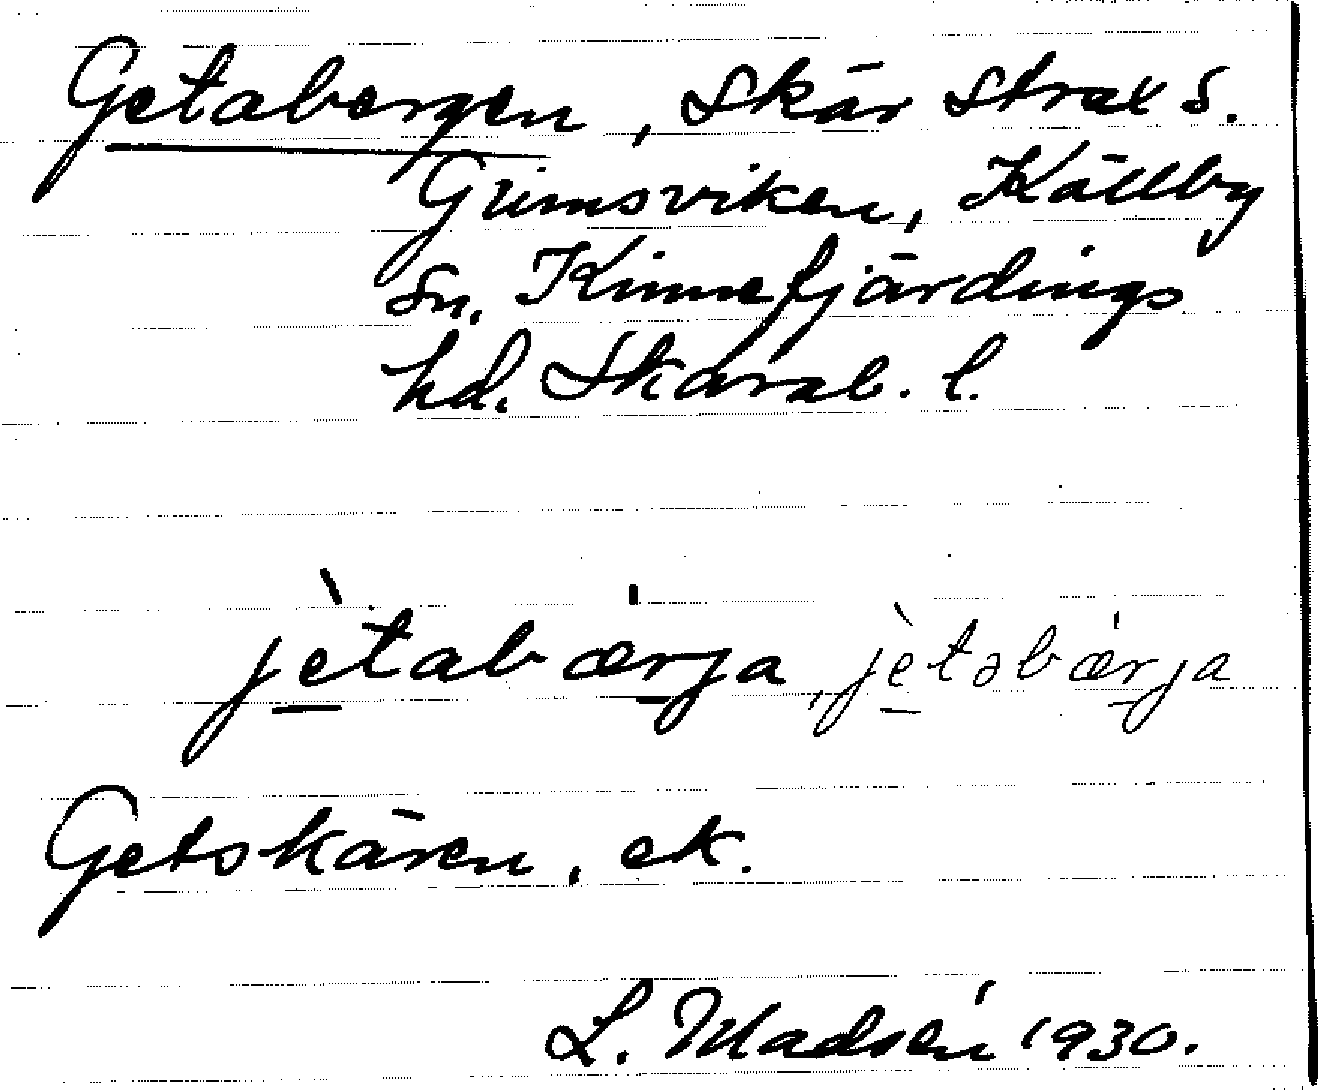 Getabergen, Skär strax S.
Grimsviken, Källby
sn. Kinnefjärdings
hd. Skarab. l.
jètabærja, jètabærja
Getskären, ek.
L. Madsén 1930.